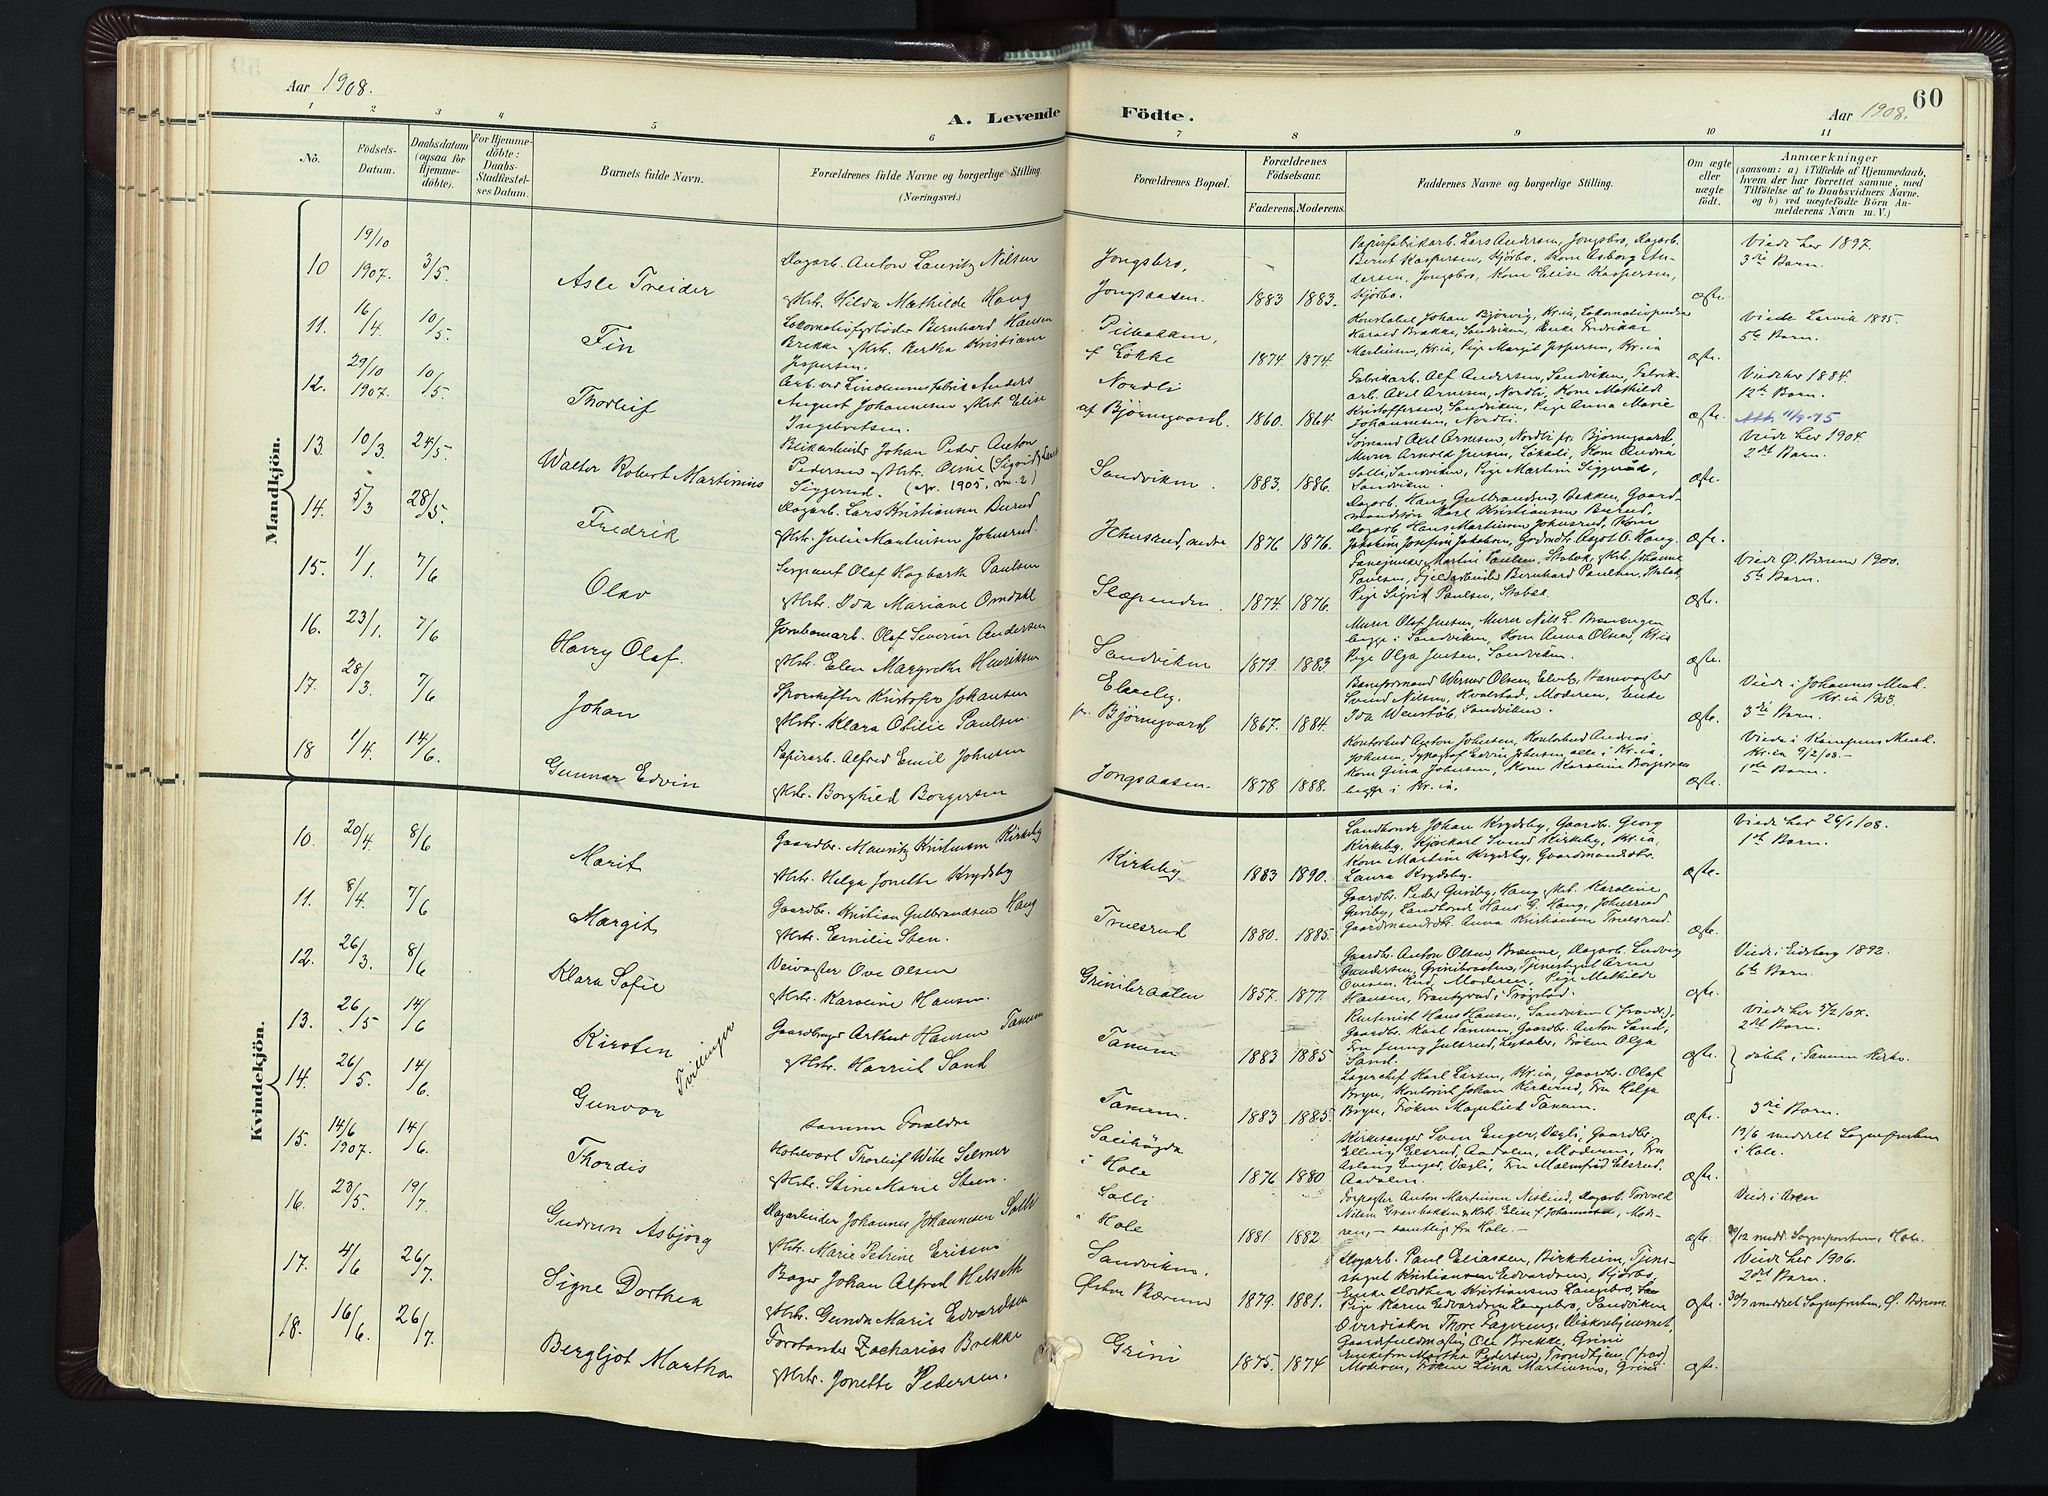 Aar 1908.
A. Levende Födte.
Aar 1908.
60
1 2 3 4 5 6 7 8 9 10 11
No.
Födsels-
Datum.
Daabsdatum
(ogsaa for
Hjemme-
döbte).
For Hjemme-
döbte:
Daabs-
Stadfæstel-
ses Datum.
Barnets fulde Navn.
Forældrenes fulde Navne og borgerlige Stilling.
(Næringsvei.)
Forældrenes Bopæl.
Forældrenes
Födselsaar.
Faderens. Moderens.
Faddernes Navne og borgerlige Stilling.
Om ægte
eller
uægte
födt.
Anmærkninger
(saasom: a) i Tilfælde af Hjemmedaab,
hvem der har forrettet samme, med
Tilföielse af to Daabsvidners Navne,
og b) ved uægtefödte Börn An-
melderens Navn m. V.)
Mandkjön.
10 19/10 1907. 3/5 Asle Treider
Dagarb. Anton Lauritz Nilsen
Hstr. Hilda Mathilde Haug
Jongsbro,
Jongsaasen. 1883 1883.
Papirfabrikarb. Lars Andersen, Jongsbro, Dagarb.
Bernt Kaspersen, Kjørbo, Kone Asborg An-
dersen, Jongsbro, Kone Elise Kaspersen,
Kjørbo. ægte
Viede her 1897.
3die Barn.
11. 16/4 10/5. Fin
Lokomotivfyrbøder Bernhard Hansen
Brekke Hstr. Bertha Kristiane
Jespersen.
Løkke 1874. 1874.
Harald Brække, Sandviken, Enke Fredrikke
Martinsen, Kr.ia, Pige Margit Jespersen, Kr.ia ægte.
Viede Larvik 1895.
5te Barn.
12. 29/10 1907. 10/5. Thorleif
Arb. ved Linoleumsfabrik Anders
August Johannesen Hstr. Elise
Ingebretsen.
Nordli
af Bjørnegaard. 1860. 1864.
Fabrikarb. Alf Andersen, Sandviken, Fabrik-
arb. Axel Arnesen, Nordli, Kone Mathilde
Kristoffersen, Sandviken, Pige Anna Marie
Johannesen, Nordli. ægte.
Viede her 1884.
12te Barn.
13. 10/3 24/5. Walter Robert Martinius
Blikarbeider Johan Peder Anton
Pedersen
Siggerud. (Nr. 1905,
Sandviken. 1883. 1886.
Sømand Axel Arnesen, Nordli pr. Bjørnegaard,
Murer Arnold Jensen, Løkkeli, Kone
Solli, Sandviken, Pige Martine Siggerud,
Sandviken. ægte.
Viede her 1904.
2det Barn.
14. 5/3 28/5. Fredrik
Dagarb. Lars Kristiansen Burud
Hstr. Julie Martinsen Johnsrud.
Johnsrud, nedre 1876 1876.
Dagarb. Hans Gulbrandsen, Bakken, Gaard-
mandssøn Karl Kristiansen Burud,
Dagarb. Hans Martinsen Johnsrud, Kone
ægte.
15. 1/1. 7/6 Olav
Sergeant Olaf Hagbarth Paulsen
Hstr. Ida Mariane Omdahl
Slæpenden. 1874. 1876.
Paulsen, Fjeldarbeider Bernhard Paulsen, Stabæk,
Pige Sigrid Paulsen, Stabæk. ægte.
Viede Ø. Bærum 1900.
5te Barn.
16. 23/1. 7/6 Harry Olaf.
Jernbanearb. Olaf Severin Andersen
Hstr. Elen Margrethe Henriksen
Sandviken 1879. 1883.
Murer Olaf Jensen, Murer Nils L. Brenengen
begge i Sandviken, Kone Anna Olsen, Kr.ia
Pige Olga Jensen, Sandviken. ægte.
17. 28/3. 7/6 Johan
Sporskifter Kristofer Johansen
Hstr. Klara Otilie Paulsen.
Elvely,
pr. Bjørnegaard 1867. 1884.
Baneformand Werner Olsen, Elvely, Banevogter
Svend Nilsen, Hvalstad, Moderen, Enke
Ida Wenstøb, Sandviken. ægte.
Viede i Johannes Menh.
Kr.ia 1903.
3die Barn.
18 1/4. 14/6. Gunnar Edvin
Papirarb. Alfred Emil Johnsen
Hstr. Borghild Borgersen
Jongsaasen. 1878 1888.
Kontorbud Anton Johnsen, Kontorbud Andreas
Johnsen, Typograf Edvin Johnsen, alle i Kr.ia.
Kone Gina Johnsen, Kone Karoline Borgersen
begge i Kr.ia. ægte.
Viede i Kampens Menh.
Kr.ia 9/2/08.
1ste Barn.
Kvindekjön.
10. 20/4. 8/6 Marit
Gaardbr. Mauritz Kristiansen Kirkeby
Hstr. Helga Jonette Krydsby
Kirkeby 1883 1890.
Landhandl. Johan Krydsby, Gaardbr. Georg
Kirkeby, Kjøekarl Svend Kirkeby, Kr.ia,
Kone Martine Krydsby, Gaardmandsdtr.
Laura Krydsby. ægte.
Viede her 26/1/08.
1ste Barn.
11. 8/4. 7/6 Margit
Gaardbr. Kristian Gulbrandsen Haug
Hstr. Emilie Sten.
Truesrud 1880. 1885.
Gaardbr. Peder Guriby, Haug, Hstr. Karoline
Guriby, Landhandl. Hans G. Haug, Johnsrud
Gaardmandsdtr. Anna Kristiansen Truesrud. ægte.
12. 26/3. 8/6 Klara Sofie
Veivogter Ove Olsen
Hstr. Karoline Hansen.
Grinibraaten 1857. 1877.
Gaardbr. Anton Olsen Brenne, Dagarb. Ludvig
Gundersen, Grinibraaten, Tjenestegut Arne
Ovesen, Rud, Moderen, Pige Mathilde
Hansen, i Trøgstad. ægte.
Viede i Eidsberg 1892.
6te Barn.
13. 26/5 14/6 Kirsten
Tvillinger
Gaardbruger Arthur Hansen Tanum
Hstr. Harriet Sand
Tanum 1883 1885
Rentenist Hans Hansen, Sandviken (fravd.),
Gaardbr. Karl Tanum, Gaardbr. Anton Sand,
Fru Jenny Julsrud, Lysaker, Frøken Olga
Sand. ægte.
Viede her 5/2/07.
2det Barn.
døbte i Tanum Kirke.
14. 26/5. 14/6. Gunvor
samme Forældre
Tanum. 1883. 1885.
Lagerchef Karl Larsen, Kr.ia, Gaardbr. Olaf
Bryn, Kontorist Johan Kirkerud, Fru Helga
Bryn, Frøken Magnhild Tanum. ægte.
3die Barn.
15. 14/6 1907. 14/6. Thordis
Hotelvært Thorleif Wibe Selmer
Hstr. Stine Marie Steen.
Sollihøgda
i Hole 1876 1880
Kirkesanger Sven Enger, Vægli, Gaardbr.
Elling Elsrud, Aadalen, Moderen, Fru
Aslaug Enger, Vægli, Fru Malmfrid Elsrud,
Aadalen. ægte.
19/6 meddelt Sognepresten
i Hole.
16. 23/5. 19/7. Gudrun Asbjørg
Dagarbeider Johannes Johannesen Solli
Hstr. Marie Petrine Eriksen
Solli
i Hole 1881. 1882.
Forpagter Anton Martinsen Niskind, Dagarb. Torvald
Nilsen Granbakken, Hstr. Elise Johannesen, Mode-
ren, – samtlige fra Hole. – ægte.
Viede i
/12 medd. Sognepresten, Hole.
17. 4/6 26/7. Signe Dorthea
Bager Johan Alfred Helseth
Hstr. Gunda Marie Edvardsen
Sandviken.
Østre Bærum 1879. 1881.
Dagarb. Paul Eliassen, Birkheim, Tjene-
stegut Kristian Edvardsen, Kjørbo,
Enke Dorthea Kristiansen Langebro,
Pige Karen Edvardsen Langebro, Sandviken ægte.
Viede her 1906.
2det Barn.
30/7 meddelt Sognepresten, Ø. Bærum.
18. 16/6. 26/7. Bergljot Martha
Forstander Zacharias Brekke
Hstr. Jonette Pedersen.
Grini 1875. 1874
Overdiakon Thore Fagereng, Diakonhjemmet,
Gaardsfuldmægtig Ole Brekke, Grini
Enkefru Martha Pedersen, Trondhjem (frav.)
Moderen, Frøken Lina Martinsen, Grini ægte.